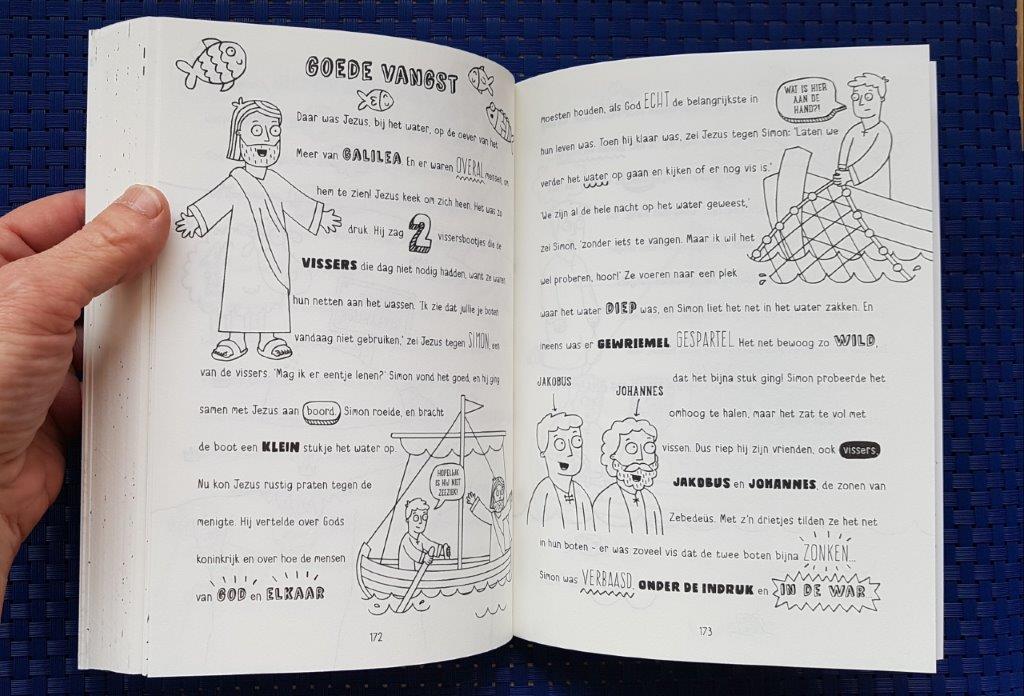 GOEDE VANGST
Daar was Jezus, bij het water, op de oever van het
Meer van GALILEA. En er waren OVERAL mensen, om
hem te zien! Jezus keek om zich heen. Het was zo
druk. Hij zag 2 vissersbootjes die de
VISSERS die dag niet nodig hadden, want ze waren
hun netten aan het wassen. 'Ik zie dat jullie je boten
vandaag niet gebruiken,' zei Jezus tegen SIMON, een
van de vissers. 'Mag ik er eentje lenen?' Simon vond het goed, en hij ging
samen met Jezus aan boord. Simon roeide, en bracht
de boot een KLEIN stukje het water op.
Nu kon Jezus rustig praten tegen de
menigte. Hij vertelde over Gods
koninkrijk en over hoe de mensen
van GOD en ELKAAR
HOPELIJK
IS HIJ NIET
ZEEZIEK!
172
moesten houden, als God ECHT de belangrijkste in
hun leven was. Toen hij klaar was, zei Jezus tegen Simon: 'Laten we
verder het water op gaan en kijken of er nog vis is.'
'We zijn al de hele nacht op het water geweest,'
zei Simon, 'zonder iets te vangen. Maar ik wil het
wel proberen, hoor!' Ze voeren naar een plek
waar het water DIEP was, en Simon liet het net in het water zakken. En
ineens was er GEWRIEMEL GESPARTEL Het net bewoog zo WILD,
dat het bijna stuk ging! Simon probeerde het
omhoog te halen, maar het zat te vol met
vissen. Dus riep hij zijn vrienden, ook vissers,
JAKOBUS en JOHANNES, de zonen van
Zebedeüs. Met z'n drietjes tilden ze het net
in hun boten – er was zoveel vis dat de twee boten bijna ZONKEN...
Simon was VERBAASD, ONDER DE INDRUK en IN DE WAR
WAT IS HIER
AAN DE
HAND?!
JAKOBUS
JOHANNES
173